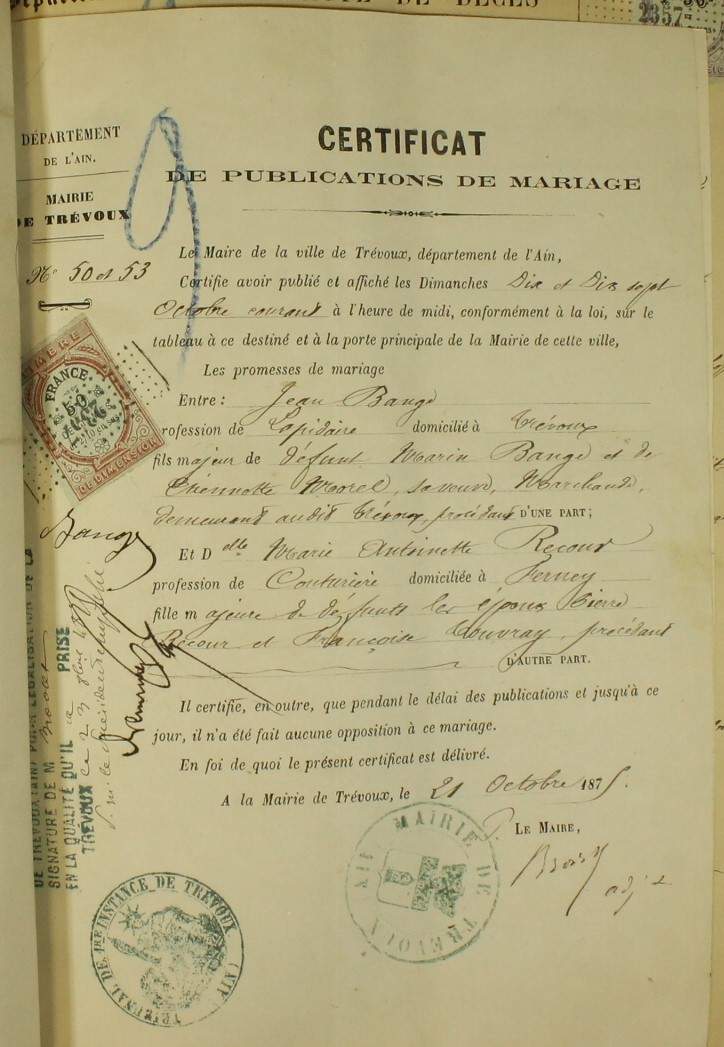 DÉPARTEMENT
DE L'AIN.
MAIRIE
DE TRÉVOUX
Nº 50 et 53
CERTIFICAT
DE PUBLICATIONS DE MARIAGE
Le Maire de la ville de Trévoux, département de l'Ain,
Certifie avoir publié et affiché les Dimanches Dix et Dix sept
Octobre courant à l'heure de midi, conformément à la loi, sur le
tableau à ce destiné et à la porte principale de la Mairie de cette ville,
Les promesses de mariage
Entre : Jean Bange
profession de Lapidaire domicilié à Trévoux
fils majeur de defunt Marin Bange et de
Morel, sa veuve, Marchande,
demeurant audit Trévoux, procédant D'UNE PART ;
Et Delle Marie Antoinette Recour
profession de Couturière domiciliée à Ferney
fille majeure de défunts les époux Pierre
Recour et Françoise Couvray, procédant
D'AUTRE PART.
Il certifie, en outre, que pendant le délai des publications et jusqu'à ce
jour, il n'a été fait aucune opposition à ce mariage.
En foi de quoi le présent certificat est délivré.
A la Mairie de Trévoux, le 21 Octobre 1875.
P. LE MAIRE,
adjt
TIMBRE
FRANCE
50
DE DIMENSION
Bange
POUR LEGALISATION DE LA
SIGNATURE DE M
EN LA QUALITÉ QU'IL a PRISE
TRÉVOUX ce 23
MAIRIE DE TREVOUX AIN
TRIBUNAL DE 1RE INSTANCE DE TREVOUX (AIN)